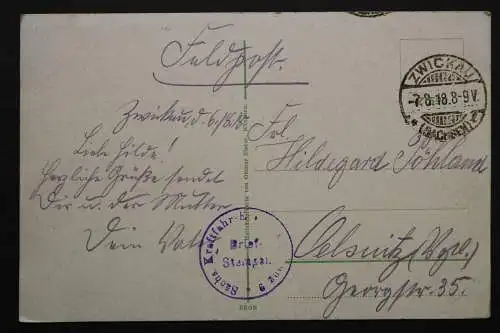 Feldpost.
ZWICKAU
-7.8.18.8-9V.
(SACHSEN)
Zwickau, d. 6./8.18.
Liebe Hilde!
Herzliche Grüße sendet
Dir u. der Mutter
Dein Vater
Frl.
Hildegard Söhland
Oelsnitz (Vgl.)
Georgstr. 35.
Sächs. Kraftfahr-E
Brief-
Stempel.